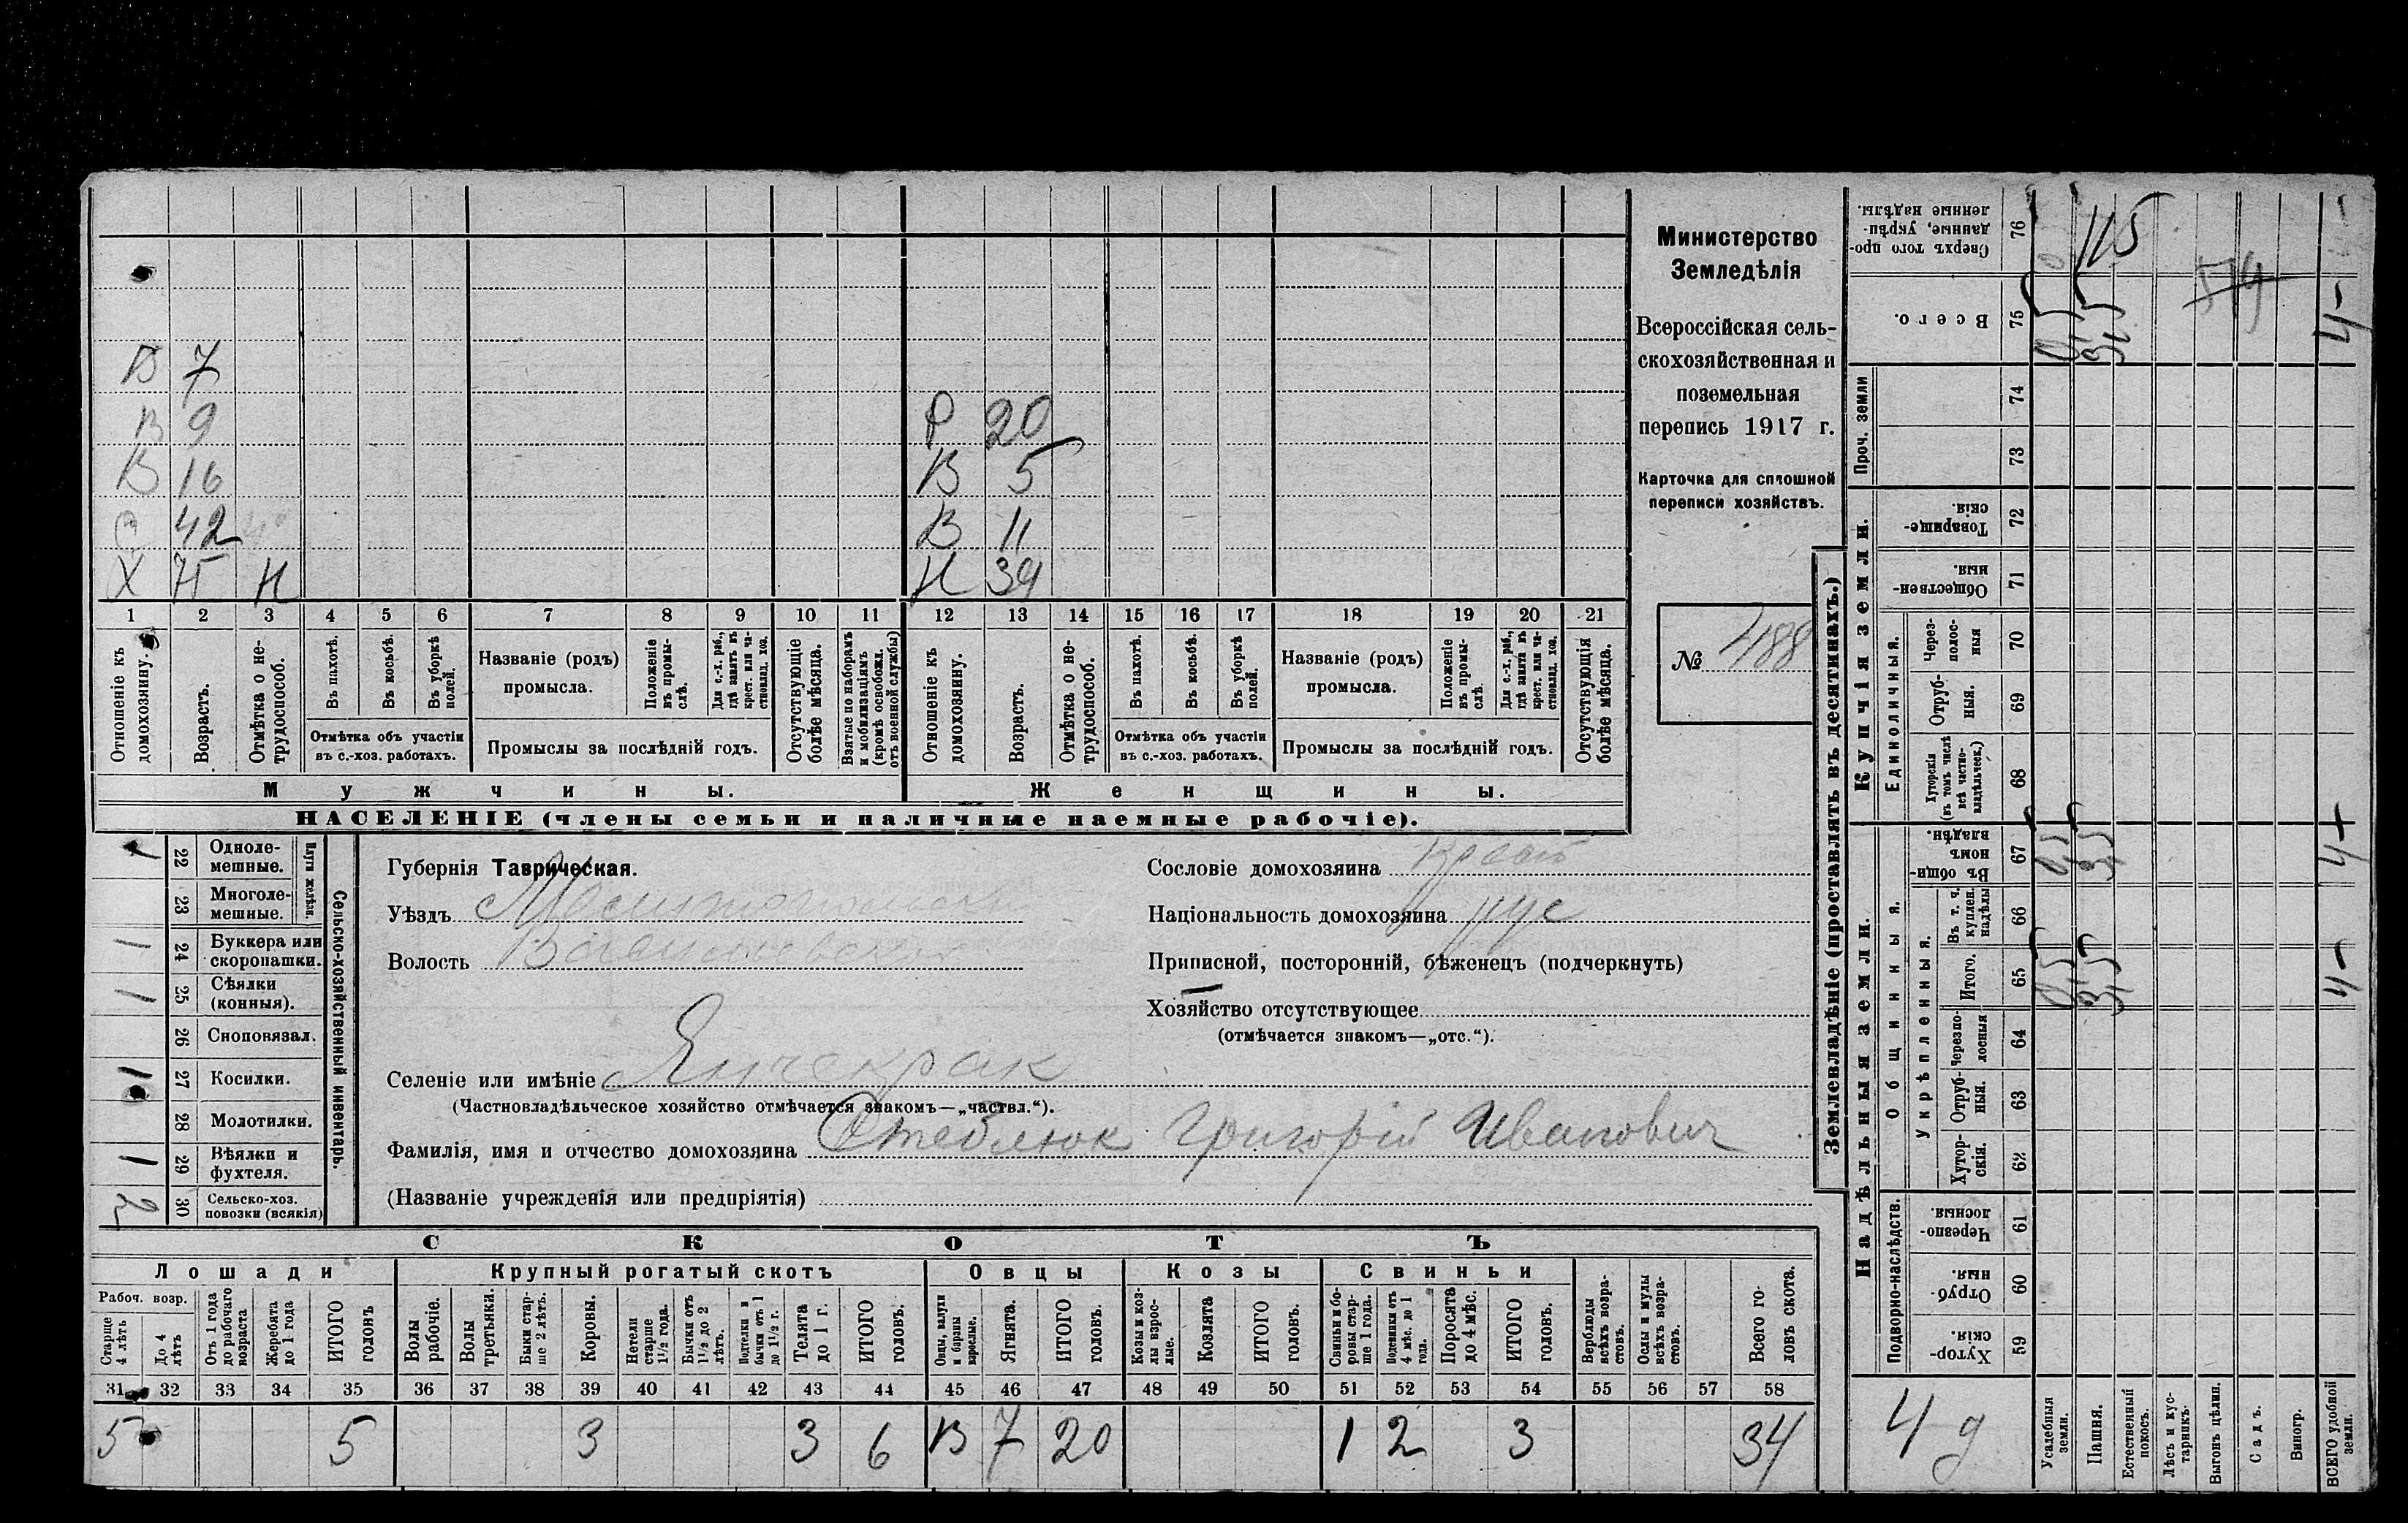 Министерство
Земледѣлія
Всероссійская сель-
скохозяйственная и
поземельная
перепись 1917 г.
Карточка для сплошной
переписи хозяйствъ.
№ 488
В 7
В 9
В 16
С 42
Х 75 Н
Р 20
В 5
В 11
Н 39
1 2 3 4 5 6 7 8 9 10 11 12 13 14 15 16 17 18 19 20 21
Отношеніе къ домохозяину.
Возрастъ.
Отмѣтка о не-трудоспособ.
Въ пахотѣ.
Въ косьбѣ.
Въ уборкѣ полей.
Отмѣтка объ участіи
въ с.-хоз. работахъ.
Названіе (родъ)
промысла.
Положеніе въ промы-слѣ.
Для с.-х. раб., гдѣ занятъ въ крест. или ча-стновлад. хоз.
Промыслы за послѣдній годъ.
Отсутствующіе болѣе мѣсяца.
Взятые по наборамъ и мобилизаціямъ (кромѣ освобожд. отъ военной службы)
Отношеніе къ домохозяину.
Возрастъ.
Отмѣтка о не-трудоспособ.
Въ пахотѣ.
Въ косьбѣ.
Въ уборкѣ полей.
Отмѣтка объ участіи
въ с.-хоз. работахъ.
Названіе (родъ)
промысла.
Положеніе въ промы-слѣ.
Для с.-х. раб., гдѣ занята въ крест. или ча-стновлад. хоз.
Промыслы за послѣдній годъ.
Отсутствующія болѣе мѣсяца.
Мужчины.
Женщины.
НАСЕЛЕНІЕ (члены семьи и наличные наемные рабочіе).
Сельско-хозяйственный инвентарь.
Плуги желѣзн.
1 22 Одноле-мешные.
23 Многоле-мешные.
1 24 Буккера или скоропашки.
1 25 Сѣялки (конныя).
26 Сноповязал.
1 27 Косилки.
28 Молотилки.
1 29 Вѣялки и фухтеля.
30 Сельско-хоз. повозки (всякія)
Губернія Таврическая.
Уѣздъ Мелитопольскій
Волость Васильевская
Селеніе или имѣніе Янчекрак
(Частновладѣльческое хозяйство отмѣчается знакомъ—„частвл.“).
Фамилія, имя и отчество домохозяина Стеблюк Григорій Иванович
(Названіе учрежденія или предпріятія)
Сословіе домохозяина Крест
Національность домохозяина рус
Приписной, посторонній, бѣженецъ (подчеркнуть)
Хозяйство отсутствующее
(отмѣчается знакомъ—„отс.“).
СКОТЪ
Лошади
Крупный рогатый скотъ
Овцы
Козы
Свиньи
Рабоч. возр.
Старше 4 лѣтъ
До 4 лѣтъ
Отъ 1 года до рабочаго возраста
Жеребята до 1 года
ИТОГО головъ
Волы рабочіе.
Волы третьяки.
Быки стар-ше 2 лѣтъ.
Коровы.
Нетели старше 1½ года.
Бычки отъ 1½ до 2 лѣтъ.
Подтелки и бычки отъ 1 до 1½ г.
Телята до 1 г.
ИТОГО головъ.
Овцы, валухи и бараны взрослые.
Ягнята.
ИТОГО головъ.
Козы и коз-лы взрос-лые.
Козлята
ИТОГО головъ.
Свиньи и бо-ровы стар-ше 1 года.
Подсвинки отъ 4 мѣс. до 1 года.
Поросята до 4 мѣс.
ИТОГО головъ.
Верблюды всѣхъ возра-стовъ.
Ослы и мулы всѣхъ возра-стовъ.
Всего го-ловъ скота.
31 32 33 34 35 36 37 38 39 40 41 42 43 44 45 46 47 48 49 50 51 52 53 54 55 56 57 58
5 5 3 3 6 13 7 20 1 2 3 34
Землевладѣніе (проставлять въ десятинахъ.)
Надѣльныя земли.
Купчія земли.
Проч. земли
Подворно-наслѣдств.
Общинныя.
Укрѣпленныя.
Единоличныя.
Хутор-скія. 59
Отруб-ныя. 60
Черезпо-лосныя. 61
Хутор-скія. 62
Отруб-ныя. 63
Черезпо-лосныя 64
Итого. 65
Въ т. ч. куплен. надѣлы 66
Въ общин-номъ владѣн. 67
Хуторскія (въ томъ числѣ всѣ частно-владѣльческ.) 68
Отруб-ныя. 69
Через-полос-ныя 70
Обществен-ныя. 71
Товарище-скія. 72
73
74
Всего. 75
Сверхъ того про-данные, укрѣп-ленные надѣлы. 76
Усадебныя земли.
Пашня.
Естественный покосъ.
Лѣсъ и кус-тарникъ.
Выгонъ цѣлин.
Садъ.
Виногр.
ВСЕГО удобной земли.
4 д
0,5 3,5 4-
0,5 3,5 4
0,5 3,5 4-
115